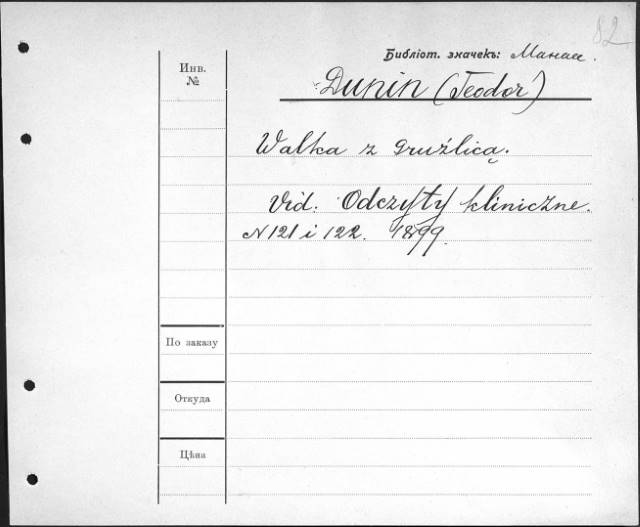 82
Библіот. значекъ:
Инв.
№
Dunin (Teodor)
Walka z gruźlicą.
Vid. Odczyty kliniczne.
N 121 i 122. 1899.
По заказу
Откуда
Цѣна